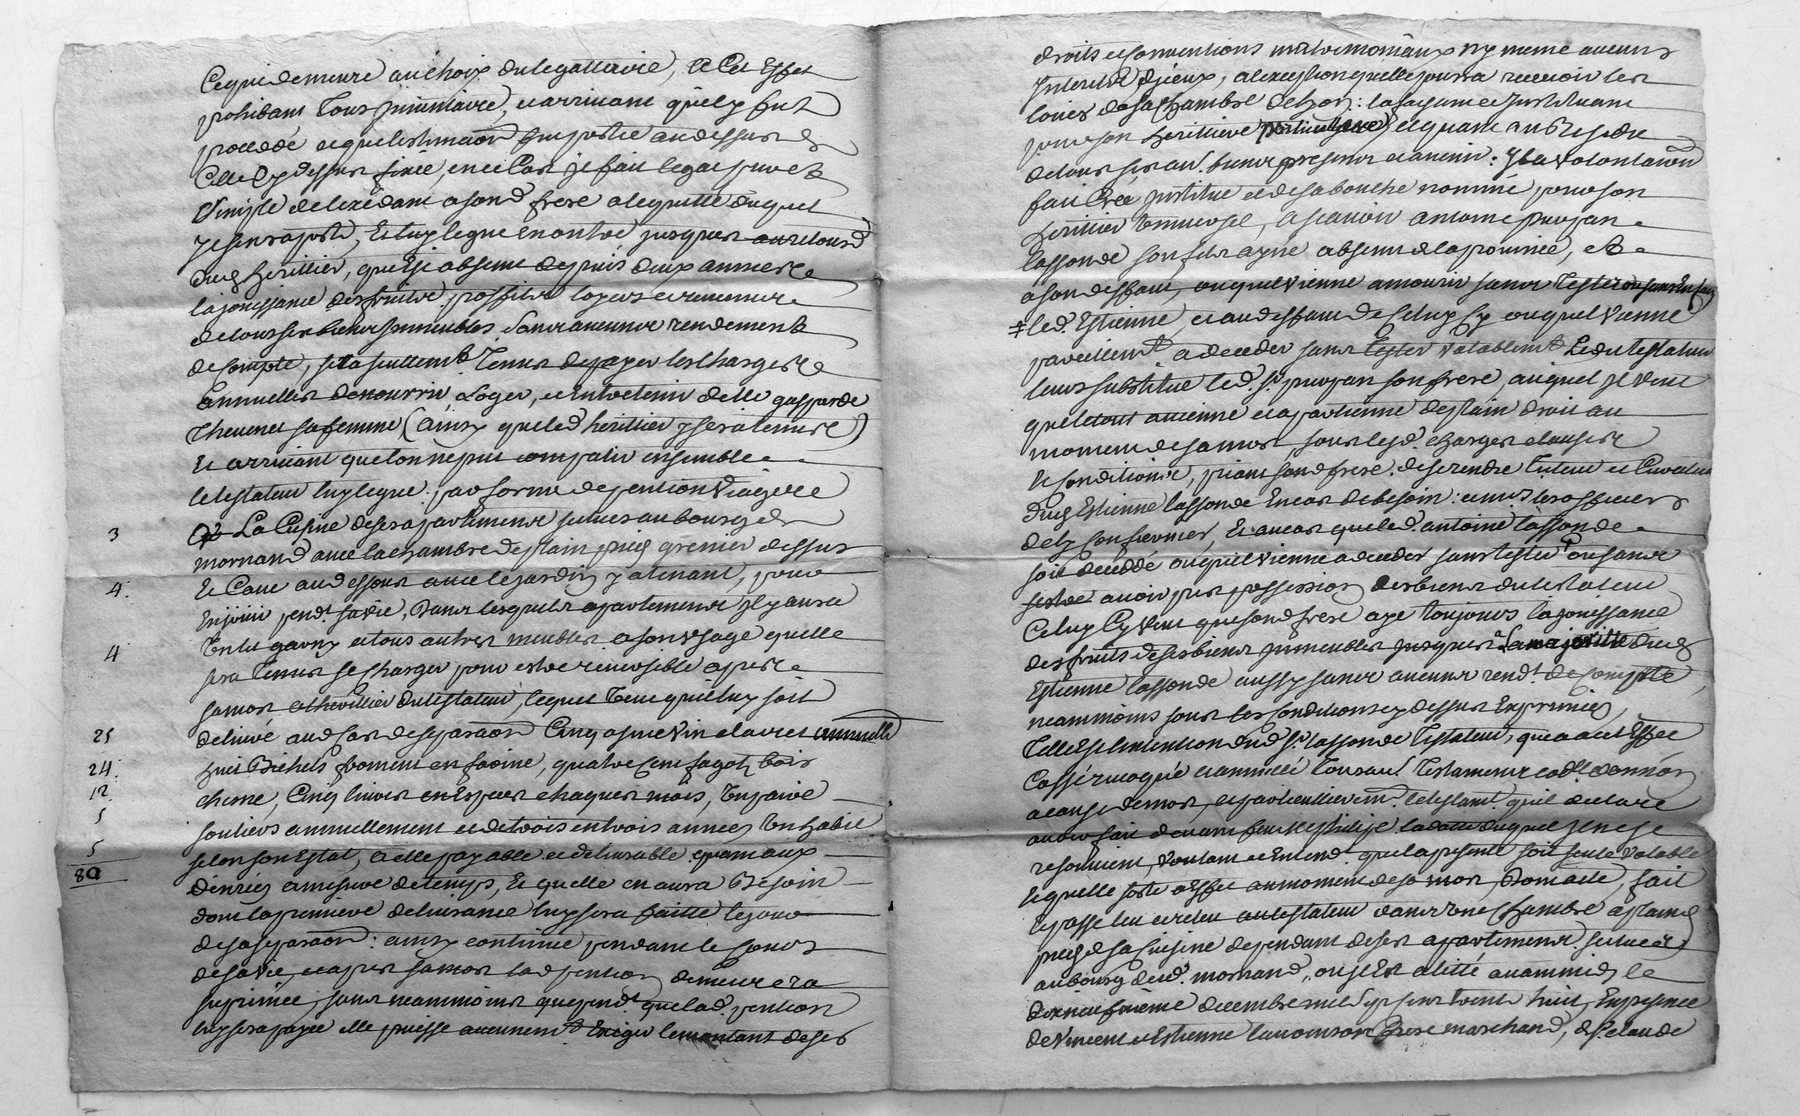 Ce qui demeure au choix du legattaire, a Cet Effet
prohibant Tous jnuentaire, et arriuant qu'il y fut
procedé et que l'estimaôn fut portée au dessus de
Celle Cy dessus fixée, en ce Cas je fait legat pur et
simple de l'exedant a son d frere a lequitté duquel
je sen raporte, Et luy legue en outre jusques au retour
dud heritier, que Est absent depuis deux années
la jouissance des fruits proffits loyers et reuenus
de tous ses biens jmmeubles sans aucuns rendement
de Compte, sera seullem.t Tenus de payer les charges
annuelles de nourrir Loger, et Entretenir delle gasparde
Theuenet sa femme (ainsy que led heritier y sera tenus)
Et arriuant que lon ne put compatir ensemble
le testateur luy legue par forme de pention viagere
La Cuisine de ses apartements scitues au bourg de
3
mornand auec la chambre de plain pied grenier dessus
Et Caue au dessous auec le jardin y atenant, pour
4
En jouir pend.t sa vie, Dans lesquels apartements jl y aura
Un lit garny et tous autres meubles a son vsage quelle
4
sera Tenus se charger pour estre reuersible apres
sa mort a l'heritier du testateur, lequel veut qu'il luy soit
deliuré aud cas de separaôn Cinq asnée vin claret annuelle
25
huit Bichets froment en farine, quatre Cent fagots bois
24
chesne, Cinq liures en Especes chaques mois, Un paire
12
souliers annuellement et de trois en trois années Un habit
5
selon son Estat, a elle payable et deliurable quant aux
5
80
Denrées a mesure de temps, Et quelle en aura Besoin
dont la premiere deliurance luy sera faitte le jour
de sa separaôn : ainsy continué pendant le Cours
de sa vie, et apres sa mort lad pention demeurera
suprimée, sans neammoins que pend.t que lad. pention
luy sera payée elle puisse aucunem.t Exiger le montant de ses
droits et Conuentions matrimoniaux ny meme aucuns
Interets d'jceux, a l'exeption quelle pourra receuoir les
loués de sa chambre de Lyon : la faisant et jnstituant
pour son heritiere particuliere, et quant au Reste de
de tous ses au.t biens presents et auenir : jl de volontairem
fait Créé jnstitue et de sa bouche nommé pour son
heritier Uniuersel, a scauoir antoine puojan
lassonde son fils ayné absent de la prouince, et
a son deffaut, ou quil vienne a mourir sans Tester ou sans Enfans
led. Estienne, et au deffaut de Celuy Cy ou quil vienne
pareillem.t a deceder sans Tester valablem.t Led. Testateur
leurs substitue led. s.r puojan son frere, auquel jl veut
que le tout auienne et apartienne de plain droit au
moment de sa mort sous lesd. charges clauses
Et Conditions, priant son d frere de se rendre Tuteur et Curateur
dud Estienne lassonde En cas de besoin :
et au cas que led. antoine lassonde
soit decedé ou quil vienne a deceder sans tester ou sans
estre auoir pris possession des biens du testateur
Celuy Cy veut que son d frere aye toujours la jouissance
des fruits de ses biens jmmeubles jusques a la majorité dud
Estienne lassonde aussy sans aucuns rend.t de Compte,
neammoins sous les Conditions cy dessus Exprimées,
Telle Est l'intention dud s.r lassonde Testateur, que a cet Effet
Cassé reuoqué et annullé Tous au.t Testaments codi.le donnaôn
a cause de mort, et particullierem.t le testam.t quil declare
auoir fait deuant la datte duquel jl ne se
resouuient, voulant et Entend que la present soit seule valable
lequelle sorte a Effet au moment de sa mort, Dont acte, fait
Et passé leu et releu au testateur dans Une Chambre a plain
pied de sa Cuisine dependant de ses apartements scitues
au bourg dud. mornand, ou jl Est alitté auammidy le
dixneufvieme decembre mil sept cens trente huit, En presence
de vincent et Estienne lauoinson pere marchand, de s.r claude